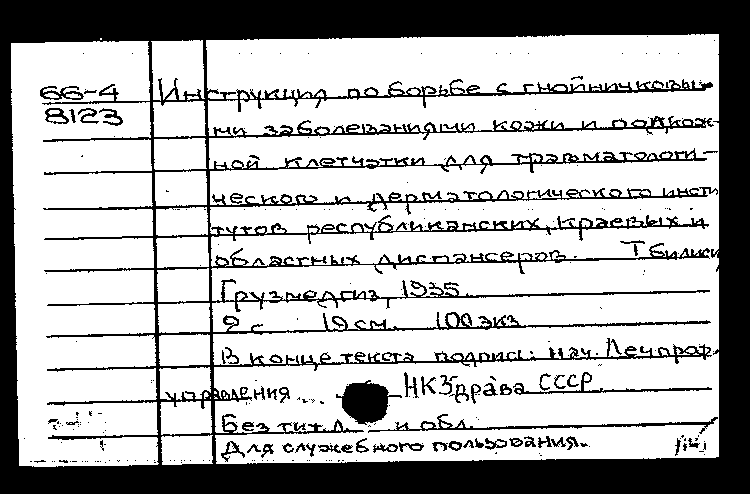 66-4 Инструкция по борьбе с гнойничковы-
8123
ми заболеваниями кожи и подкож-
ной клетчатки для травматологи-
ческого и дерматологического инсти
тутов республиканских, краевых и
областных диспансеров. Тбилиси,
Грузмедгиз, 1935.
2 с. 19 см. 100 экз.
В конце текста подпись: нач. Лечпроф.
управления ... НКЗдрава СССР.
Без тит. л. и обл.
Для служебного пользования.